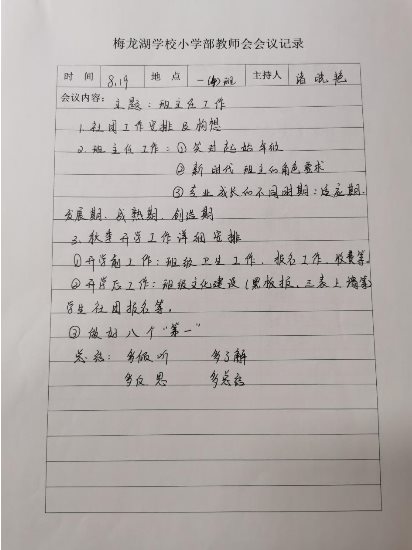 梅龙湖学校小学部教师会会议记录
时 间 8.19 地 点 一(4)班 主持人 晓艳
会议内容: 主题:班主任工作
1.社团工作安排及构想
2.班主任工作:①笑对起始年级
②新时代班主任角色要求
③专业成长的不同时期:适应期、
发展期、成熟期、创造期
3.秋季开学工作详细安排
①开学前工作:班级卫生工作,报名工作,收费等。
②开学后工作:班级文化建设(黑板报,三表上墙等)
学生社团报名等。
③做好八个“第一”
总结: 多倾听 多了解
多反思 多总结